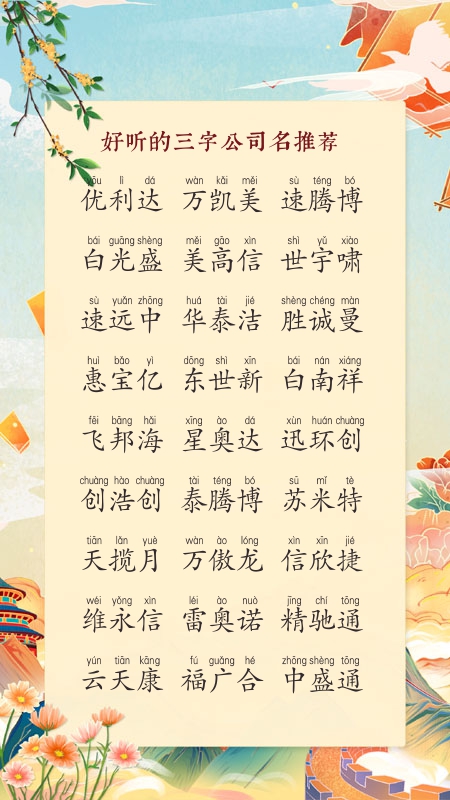 好听的三字公司名推荐
yōu lì dá wàn kǎi měi sù téng bó
优利达 万凯美 速腾博
bái guāng shèng měi gāo xìn shì yǔ xiào
白光盛 美高信 世宇啸
sù yuǎn zhōng huá tài jié shèng chéng màn
速远中 华泰洁 胜诚曼
huì bǎo yì dōng shì xīn bái nán xiáng
惠宝亿 东世新 白南祥
fēi bāng hǎi xīng ào dá xùn huán chuàng
飞邦海 星奥达 迅环创
chuàng hào chuàng tài téng bó sū mǐ tè
创浩创 泰腾博 苏米特
tiān lǎn yuè wàn ào lóng xìn xīn jié
天揽月 万傲龙 信欣捷
wéi yǒng xìn léi ào nuò jīng chí tōng
维永信 雷奥诺 精驰通
yún tiān kāng fú guǎng hé zhōng shèng tōng
云天康 福广合 中盛通